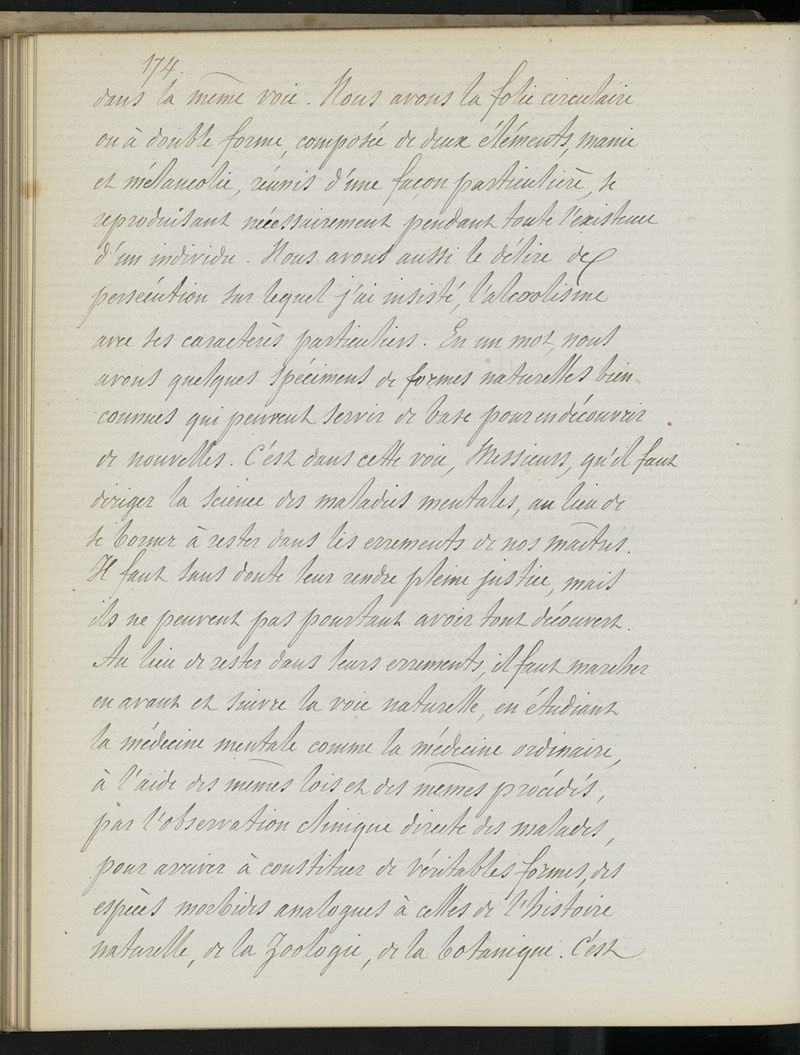 174.
dans la même voie. Nous avons la folie circulaire
ou à double forme, composée de deux éléments, manie
et mélancolie, réunis d'une façon particulière, se
reproduisant nécessairement pendant toute l'existence
d'un individu. Nous avons aussi le délire de
persécution sur lequel j'ai insisté, l'alcoolisme
avec ses caractères particuliers. En un mot, nous
avons quelques spécimens de formes naturelles bien
connues qui peuvent servir de base pour en découvrir
de nouvelles. C'est dans cette voie, Messieurs, qu'il faut
diriger la science des maladies mentales, au lieu de
se borner à rester dans les errements de nos maîtres.
Il faut sans doute leur rendre pleine justice, mais
ils ne peuvent pas pourtant avoir tout découvert.
Au lieu de rester dans leurs errements, il faut marcher
en avant et suivre la voie naturelle, en étudiant
la médecine mentale comme la médecine ordinaire,
à l'aide des mêmes lois et des mêmes procédés,
par l'observation clinique directe des malades,
pour arriver à constituer de véritables formes, des
espèces morbides analogues à celles de l'histoire
naturelle, de la Zoologie, de la botanique. C'est